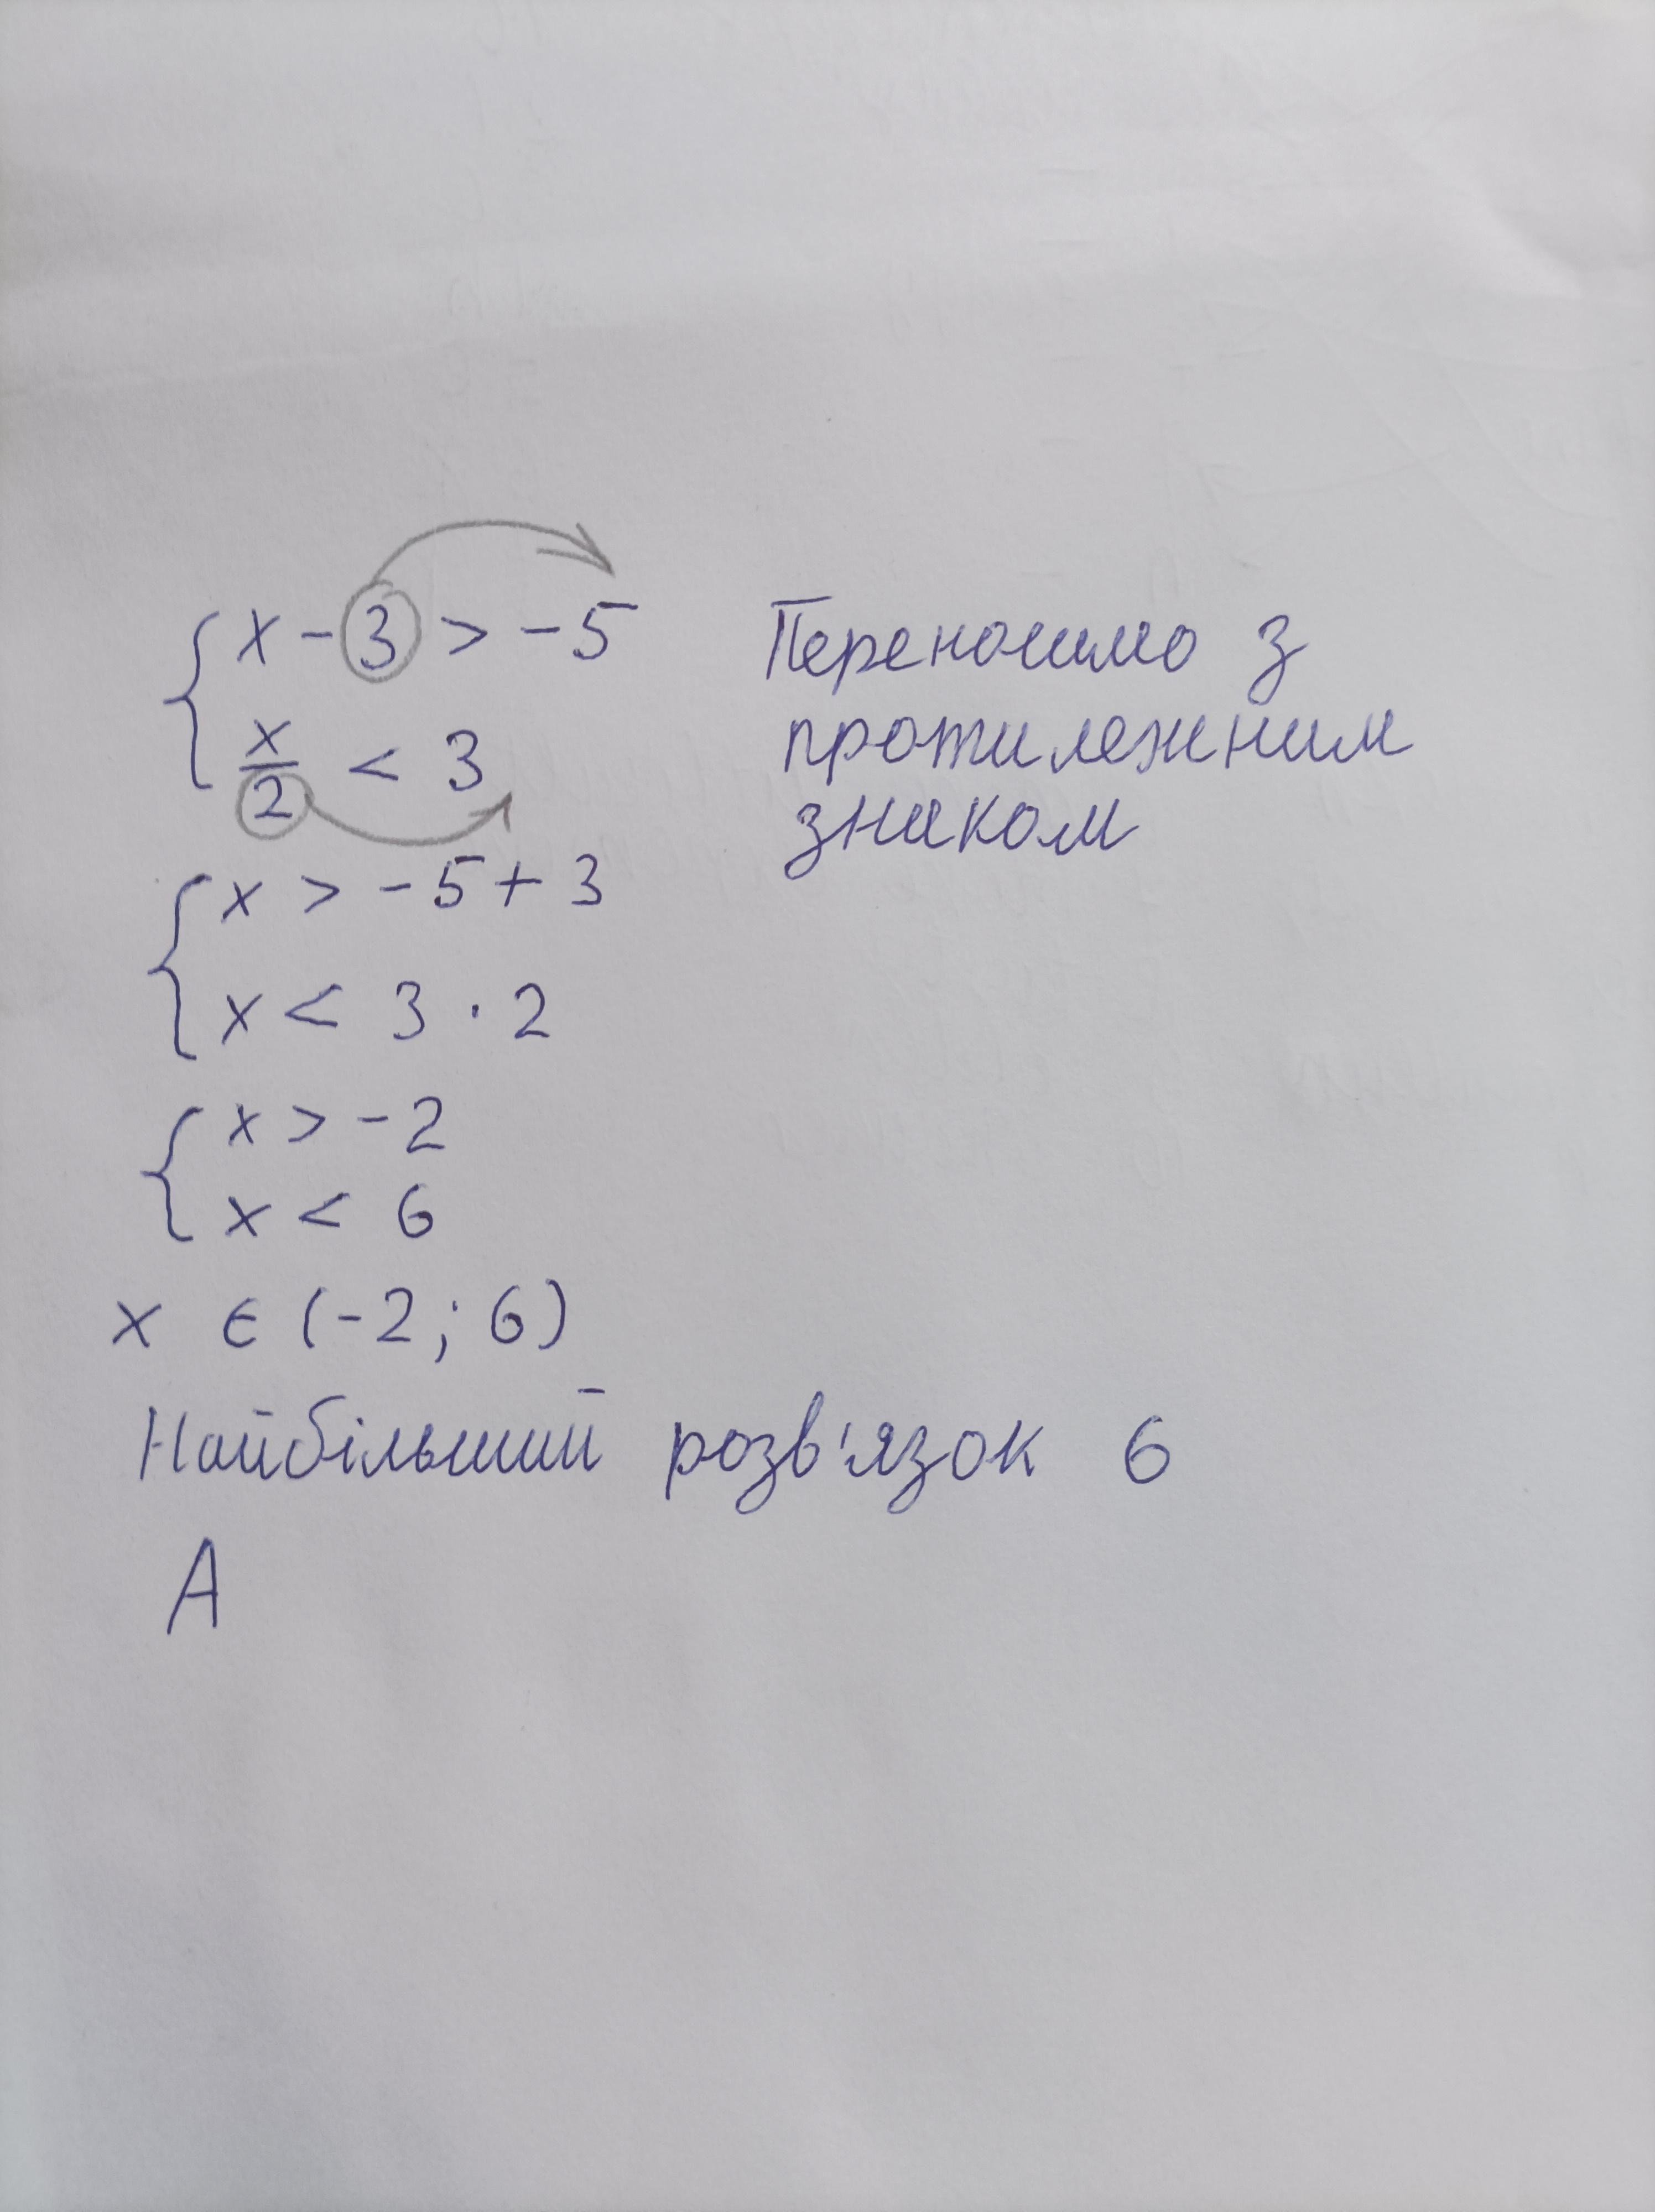 x - 3 > -5 Переносимо з
x/2 < 3 протилежним
знаком
x > -5 + 3
x < 3 · 2
x > -2
x < 6
x є (-2; 6)
Найбільший розв'язок 6
А